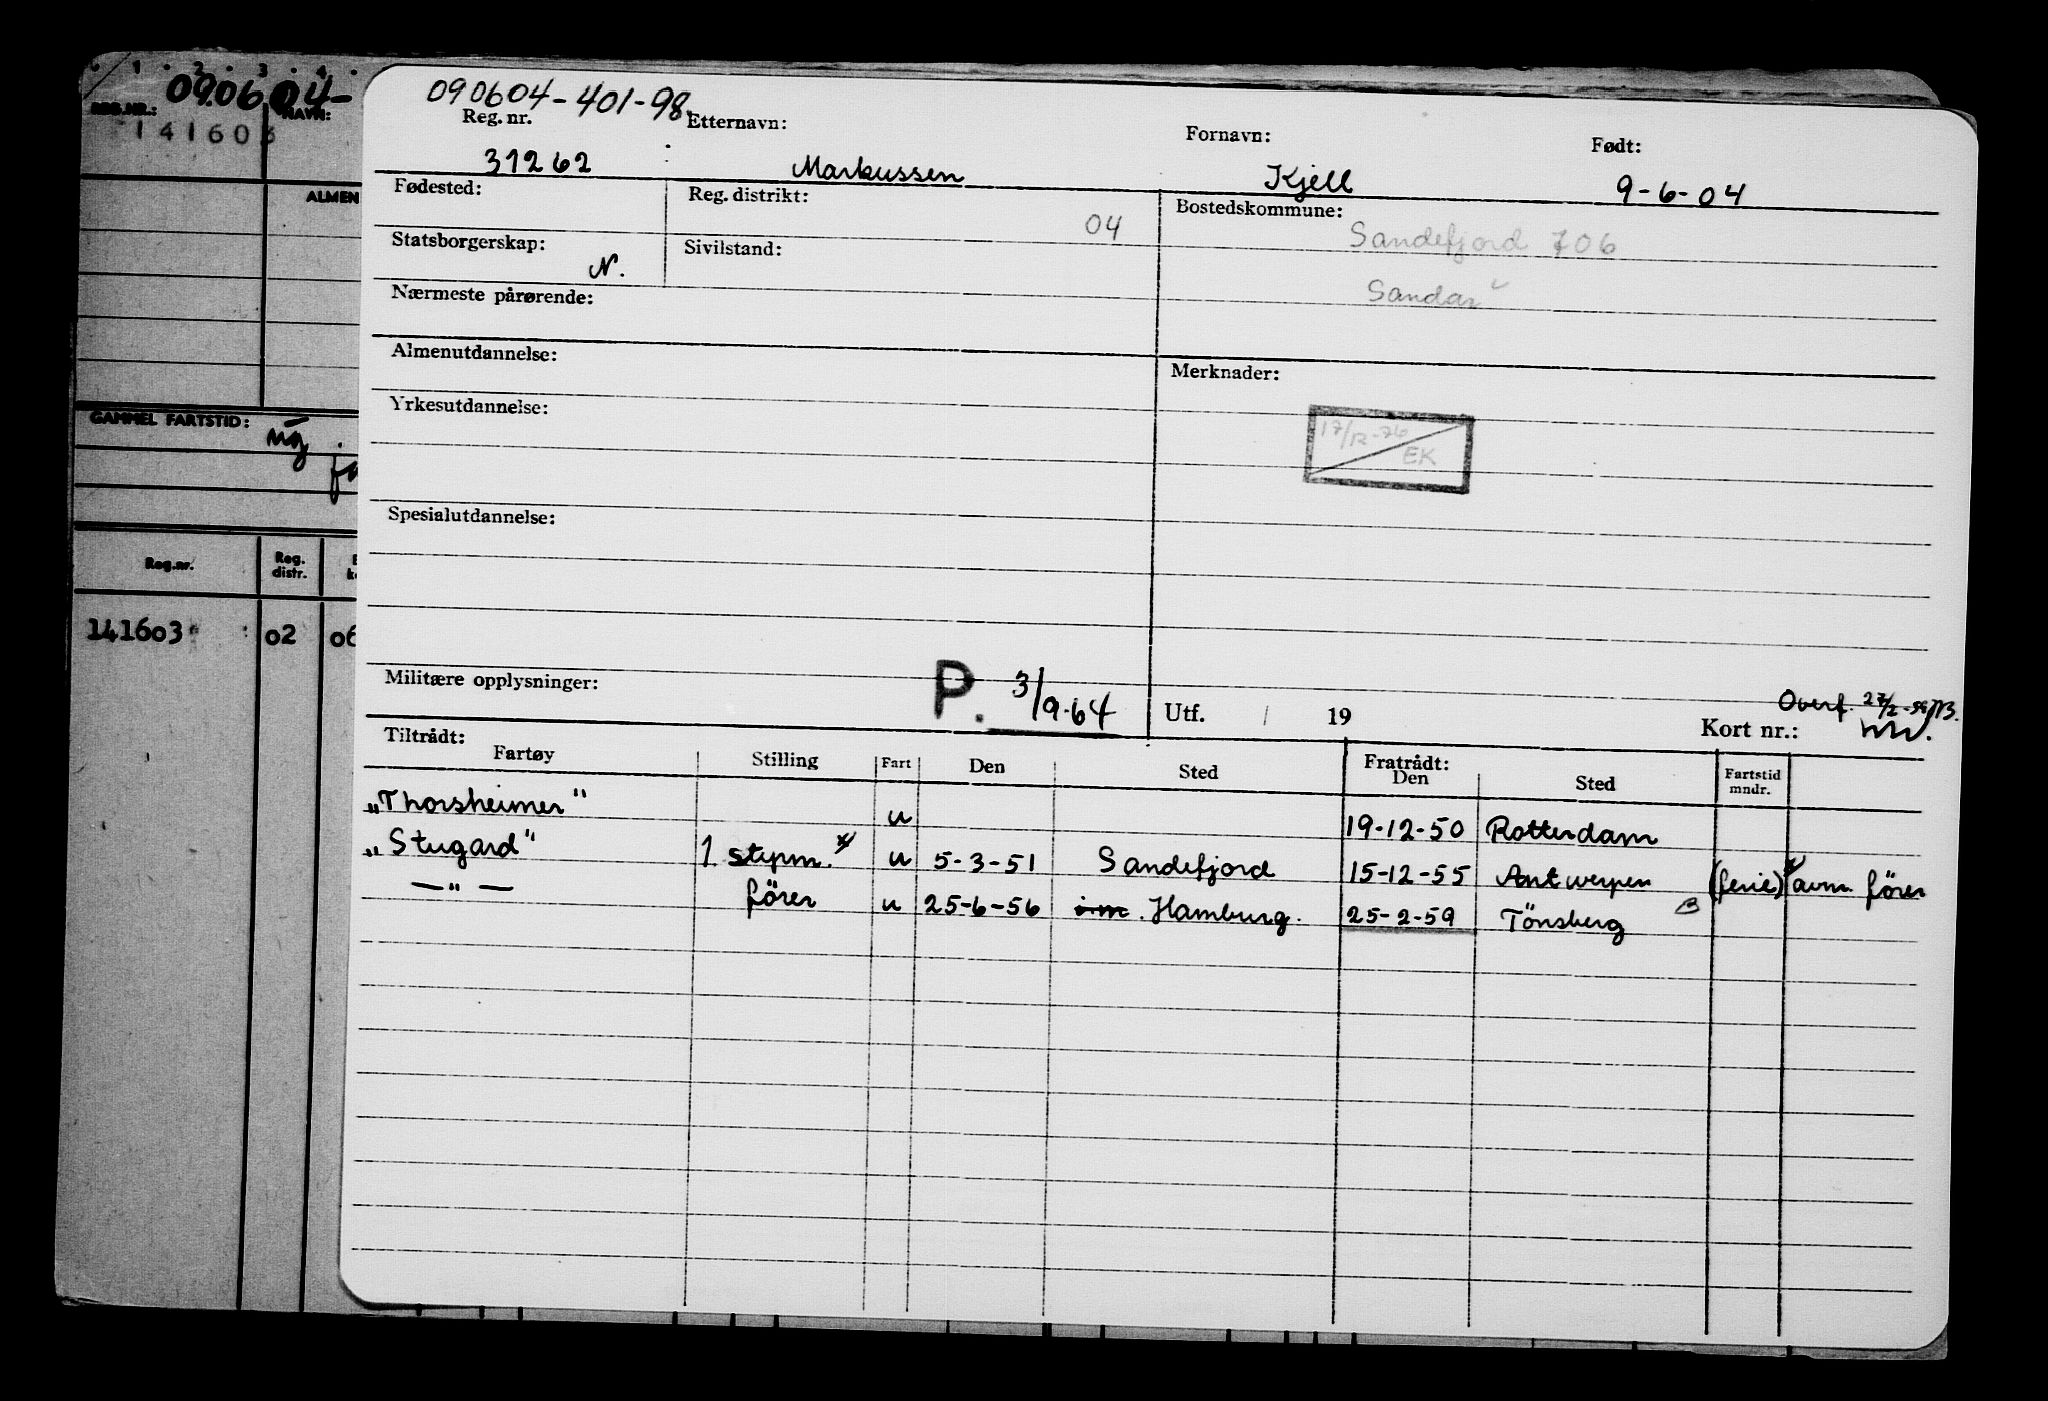 0 1 2 3 4
090604-
REG.NR.: NAVN:
141603
ALMEN
GAMMEL FARTSTID:
Reg.nr. Reg. distr.
141603 02 06
090604-401-98
Reg. nr. Etternavn: Fornavn: Født:
31262 Markussen Kjell 9-6-04
Fødested: Reg. distrikt: 04 Bostedskommune:
Sandefjord 706
Statsborgerskap: N. Sivilstand:
Sandar
Nærmeste pårørende:
Almenutdannelse: Merknader:
Yrkesutdannelse:
17/12-76
EK
Spesialutdannelse:
Militære opplysninger: P. 3/9-64 Utf. / 19 Kort nr.:
Overf. 27/2-
Tiltrådt: Fratrådt:
Fartøy Stilling Fart Den Sted Den Sted Fartstid mndr.
„Thorsheimer" u 19-12-50 Rotterdam
„Stugard" 1 styrm. x u 5-3-51 Sandefjord 15-12-55 Antwerpen (ferie) x avm. förer
—"— förer u 25-6-56 Hamburg. 25-2-59 Tönsberg B